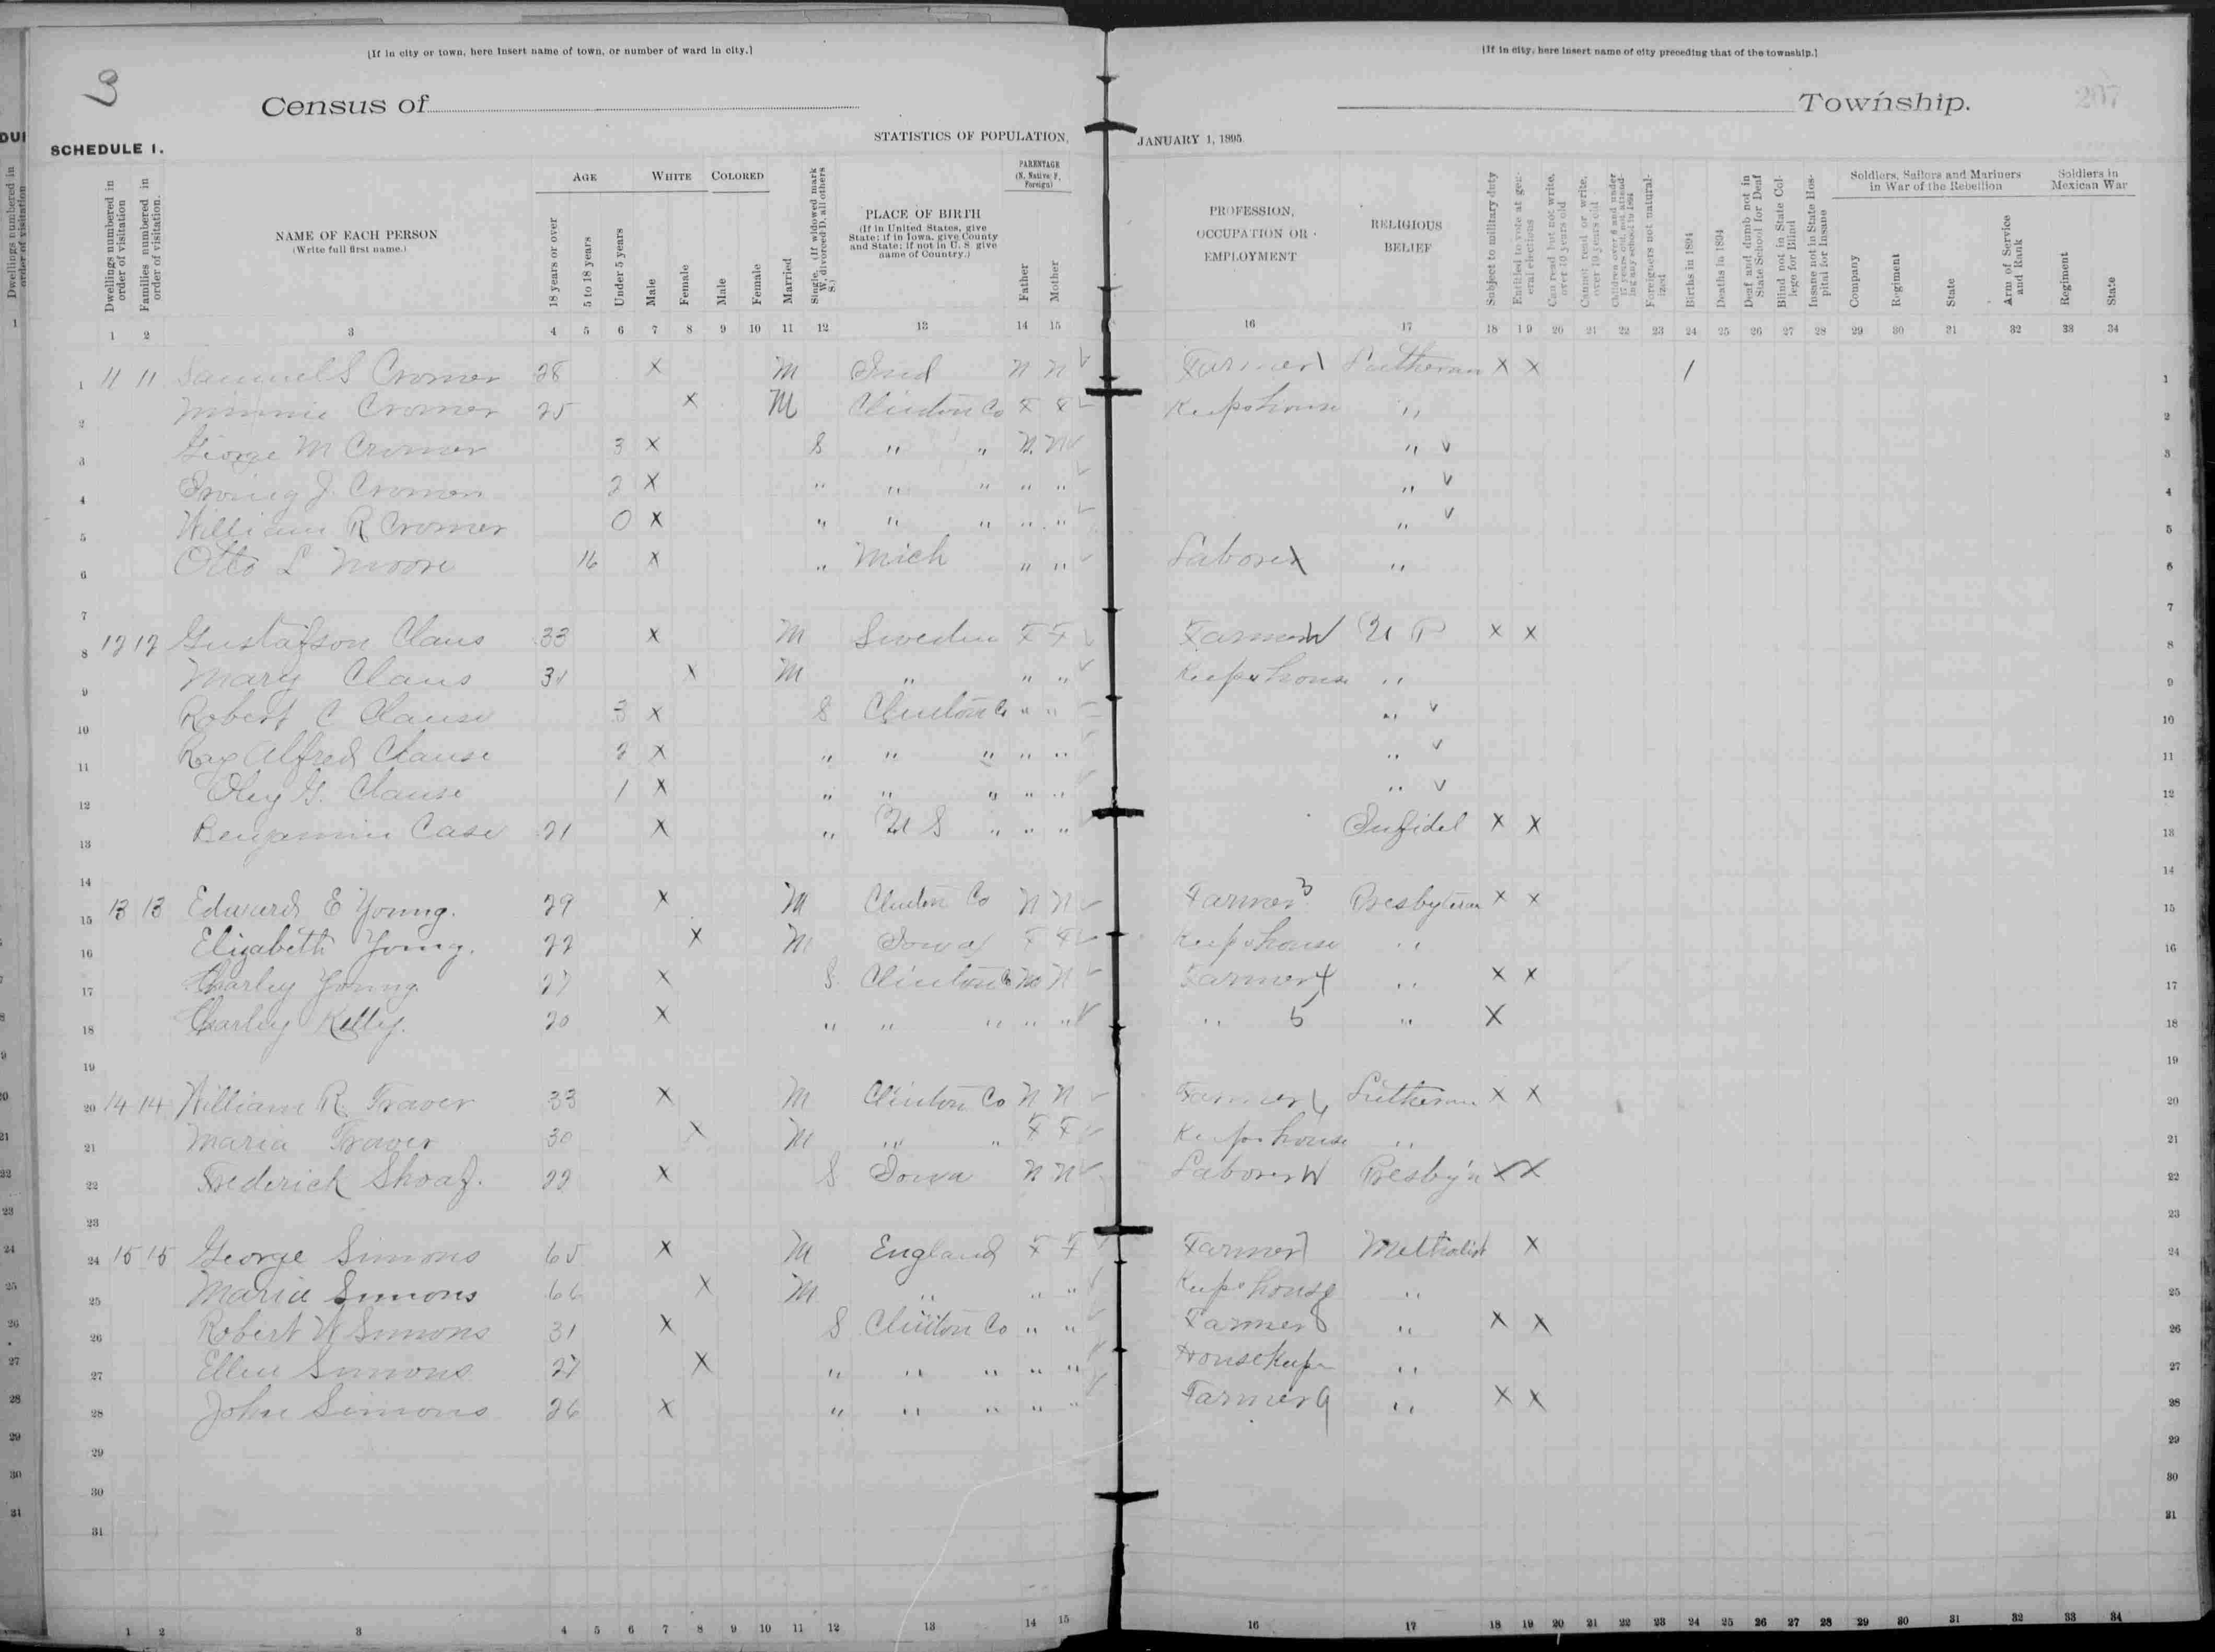 [If in city or town, here insert name of town, or number of ward in city.]
[If in city, here insert name of city preceding that of the township.]
3
Census of
Township.
207
SCHEDULE 1.
STATISTICS OF POPULATION,
JANUARY 1, 1895.
Dwellings numbered in order of visitation
Families numbered in order of visitation.
NAME OF EACH PERSON
(Write full first name.)
AGE
18 years or over
5 to 18 years
Under 5 years
WHITE
Male
Female
COLORED
Male
Female
Married
Single. (If widowed mark W, divorced D, all others S.)
PLACE OF BIRTH
(If in United States, give State; if in Iowa, give County and State; if not in U. S. give name of Country.)
PARENTAGE
(N, Native; F, Foreign)
Father
Mother
PROFESSION, OCCUPATION OR EMPLOYMENT
RELIGIOUS BELIEF
Subject to military duty
Entitled to vote at general elections
Can read but not write, over 10 years old
Cannot read or write, over 10 years old
Children over 8 and under 17 years old not attending any school in 1894
Foreigners not naturalized
Births in 1894
Deaths in 1894
Deaf and dumb not in State School for Deaf
Blind not in State College for Blind
Insane not in State Hospital for Insane
Soldiers, Sailors and Mariners in War of the Rebellion
Company
Regiment
State
Arm of Service and Rank
Soldiers in Mexican War
Regiment
State
1 2 3 4 5 6 7 8 9 10 11 12 13 14 15 16 17 18 19 20 21 22 23 24 25 26 27 28 29 30 31 32 33 34
1 11 11 Samuel S Cromer 28 X M Ind N N Farmer 1 Lutheran X X 1 1
2 Minnie Cromer 25 X M Clinton Co F F Keeps house " 2
3 George M Cromer 3 X S " " N. N " v 3
4 Irving J. Cromer 2 X " " " " " " v 4
5 William R Cromer 0 X " " " " " " v 5
6 Otto L Moore 16 X " Mich " " Laborer " 6
7 7
8 12 12 Gustafson Claus 33 X M Sweden F F Farmer U P X X 8
9 Mary Claus 31 X M " " " Keeps house " 9
10 Robert C Clause 3 X S Clinton Co " " " v 10
11 Ray Alfred Clause 2 X " " " " " " v 11
12 Oley G. Clause 1 X " " " " " " v 12
13 Benjamin Case 21 X " U S " " " Infidel X X 13
14 14
15 13 13 Edward E Young. 29 X M Clinton Co N N Farmer 3 Presbyterian X X 15
16 Elizabeth Young. 22 X M Iowa F F Keeps house " 16
17 Charley Young 27 X S Clinton Co N N Farmer 4 " X X 17
18 Charley Kelly. 20 X " " " " " " 5 " X 18
19 19
20 14 14 William R. Traver 33 X M Clinton Co N N Farmer 6 Lutheran X X 20
21 Maria Traver 30 X M " " F F Keeps house " 21
22 Frederick Shoaf. 22 X S Iowa N N Laborer W Presby'n X X 22
23 23
24 15 15 George Simons 65 X M England F F Farmer 7 Methodist X 24
25 Maria Simons 66 X M " " " Keeps house " 25
26 Robert W Simons 31 X S Clinton Co " " Farmer 8 " X X 26
27 Ellen Simons 27 X " " " " " Housekeeper " 27
28 John Simons 26 X " " " " " Farmer 9 " X X 28
29 29
30 30
31 31
1 2 3 4 5 6 7 8 9 10 11 12 13 14 15 16 17 18 19 20 21 22 23 24 25 26 27 28 29 30 31 32 33 34